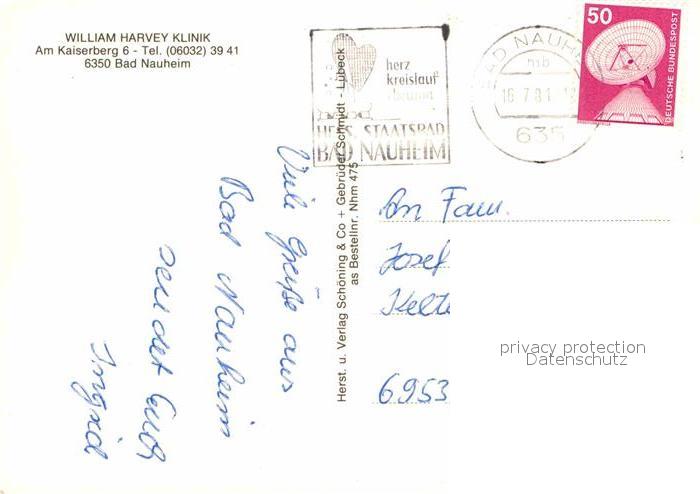 WILLIAM HARVEY KLINIK
Am Kaiserberg 6 - Tel. (06032) 39 41
6350 Bad Nauheim
herz
kreislauf
rheuma
HESS. STAATSBAD
BAD NAUHEIM
BAD NAUHEIM
mb
16.7.81
635
50
DEUTSCHE BUNDESPOST
Viele Grüße aus
Bad Nauheim
sendet Euch
Ingrid
Herst. u. Verlag Schöning & Co + Gebrüder Schmidt - Lübeck
as Bestellnr. Nhm 475
An Fam.
Josef
Kelte
6953
privacy protection
Datenschutz